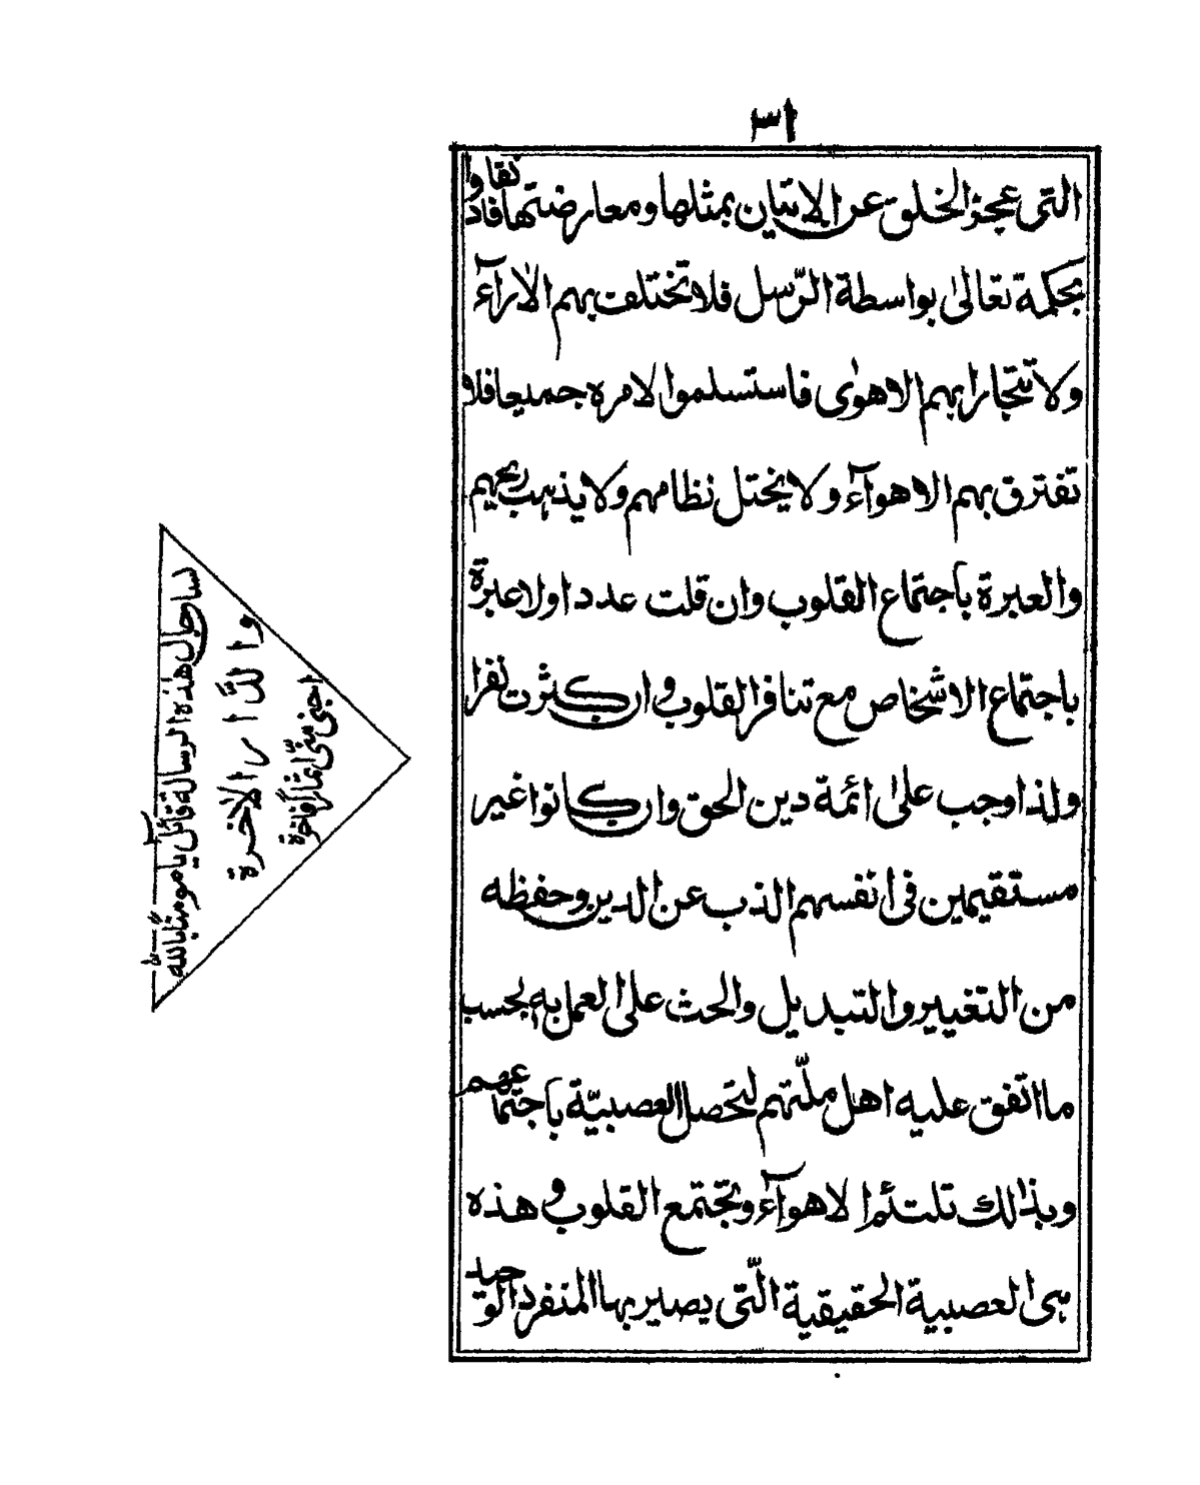 ٣١
التى عجز الخلق عن الاتيان بمثلها ومعارضتها فانقادوا
بحكمة تعالى بواسطة الرّسل فلا تختلف بهم الاراۤء
ولا تتجارا بهم الاهوٰى فاستسلموا لامره جميعا فلا
تفترق بهم الاهواۤء ولا يختل نظامهم ولا يذهب ريحهم
والعبرة باجتماع القلوب وان قلت عددا ولا عبرة
باجتماع الاشخاص مع تنافر القلوب وان كثرت نفرا
ولذا وجب علىٰ ائمة دين الحق وان كانوا غير
مستقيمين فى انفسهم الذب عن الدين وحفظه
من التغيير والتبديل والحث على العمل به بحسب
ما اتفق عليه اهل ملّتهم لتحصل العصبيّة باجتماعهم
وبذالك تلتئم الاهواۤء وتجتمع القلوب وهذه
هى العصبية الحقيقية الّتى يصير بها المنفرد الوحيد
لسان حال هذه الرسالة قائل يا مومنا بالله
والدَّار الاخرة
اجنى منّى اثمارا فاخرة